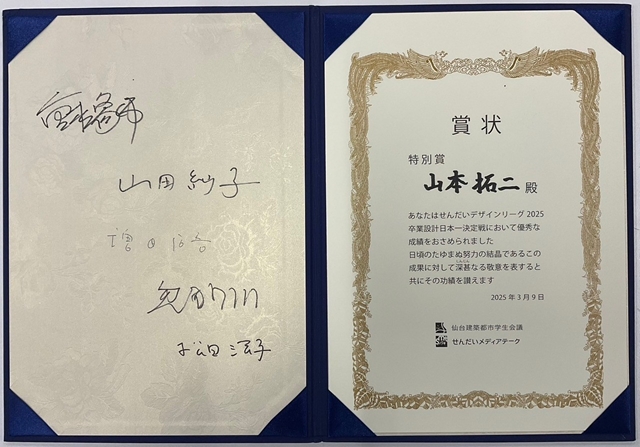 山田紗子
賞状
特別賞
山本拓二 殿
あなたはせんだいデザインリーグ2025
卒業設計日本一決定戦において優秀な
成績をおさめられました
日頃のたゆまぬ努力の結晶であるこの
成果に対して深甚なる敬意を表すると
しんじん
共にその功績を讃えます
2025年3月9日
仙台建築都市学生会議
せんだいメディアテーク